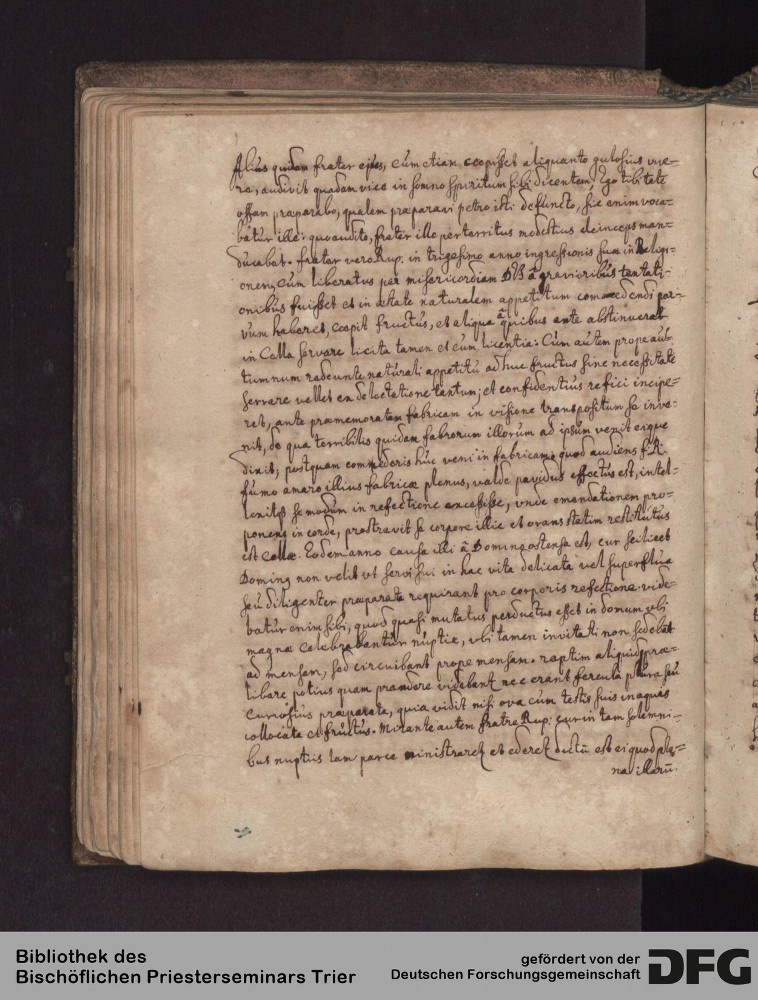 Alius quidam frater ejus, cum etiam coepisset aliquanto gulosius vive-
re, audivit quadam vice in somno spiritum sibi dicentem, Ego tibi talē
offam praeparabo, qualem praeparavi petro isti defuncto, sic enim voca-
batur ille: quo audito, frater ille perterritus modestius deinceps man-
ducabat. frater vero Rup. in trigesimo anno ingressionis suae in Religi-
onem, cum liberatus per misericordiam Dei à gravioribus tentati-
onibus fuisset et in aetate naturalem appetitum comedendi par-
vum haberet, coepit fructus, et aliqua à quibus ante abstinuerat
in Cella servare licita tamen et cum licentia: Cum autem prope aut-
tumnum redeunte naturali appetitu adhuc fructus sine necessitate
servare vellet ex delectatione tantum; et confidentius refici incipe-
ret, ante praememoratam fabricam in visione transpositum se inve-
nit, de qua terribilis quidam fabrorum illorum ad ipsum venit eique
dixit; postquam commederis huc veni in fabricam: quod audiens f. R.
fumo amaro illius fabricae plenus, valde pavidus effectus est, intel-
lexitqȝ se modum in refectione excessisse, unde emendationem pro-
ponens in corde, prostravit se corpore illic et orans statim restitutus
est Cellae. Eodem anno causa illi à Domino ostensa est, cur scilicet
Dominꝰ non velit ut servi sui in hac vita delicata vel superflua
seu diligenter praeparata requirant pro corporis refectione. vide-
batur enim sibi, quod quasi mutatus perductus esset in domum ubi
magnae celebrabantur nuptiae, ubi tamen invitati non sedebāt
ad mensam, sed circuibant prope mensam. raptim aliquid prae-
libare potius quam prandere videbant nec erant fercula plura seu
curiosius praeparata, quia vidit nisi ova cum testis suis in aquis
collocata et fructus. Mirante autem fratre Rup. cur in tam solemni-
bus nuptiis tam parce ministraret et ederet dictū est ei quod ple-
na illarū.
Bibliothek des
Bischöflichen Priesterseminars Trier
gefördert von der
Deutschen Forschungsgemeinschaft
DFG